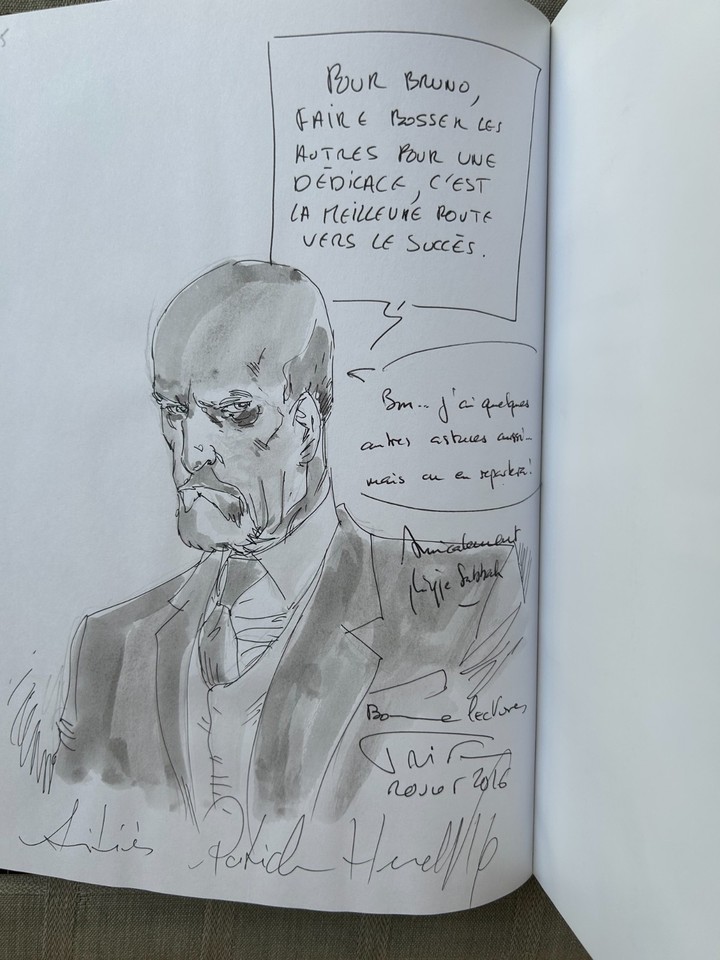 POUR BRUNO,
FAIRE BOSSER LES
AUTRES POUR UNE
DÉDICACE, C'EST
LA MEILLEURE ROUTE
VERS LE SUCCÈS.
Bon... j'ai quelques
autres astuces aussi...
mais on en reparlera!
Amicalement
Bonne lectures
2016
Amitiés Patrick